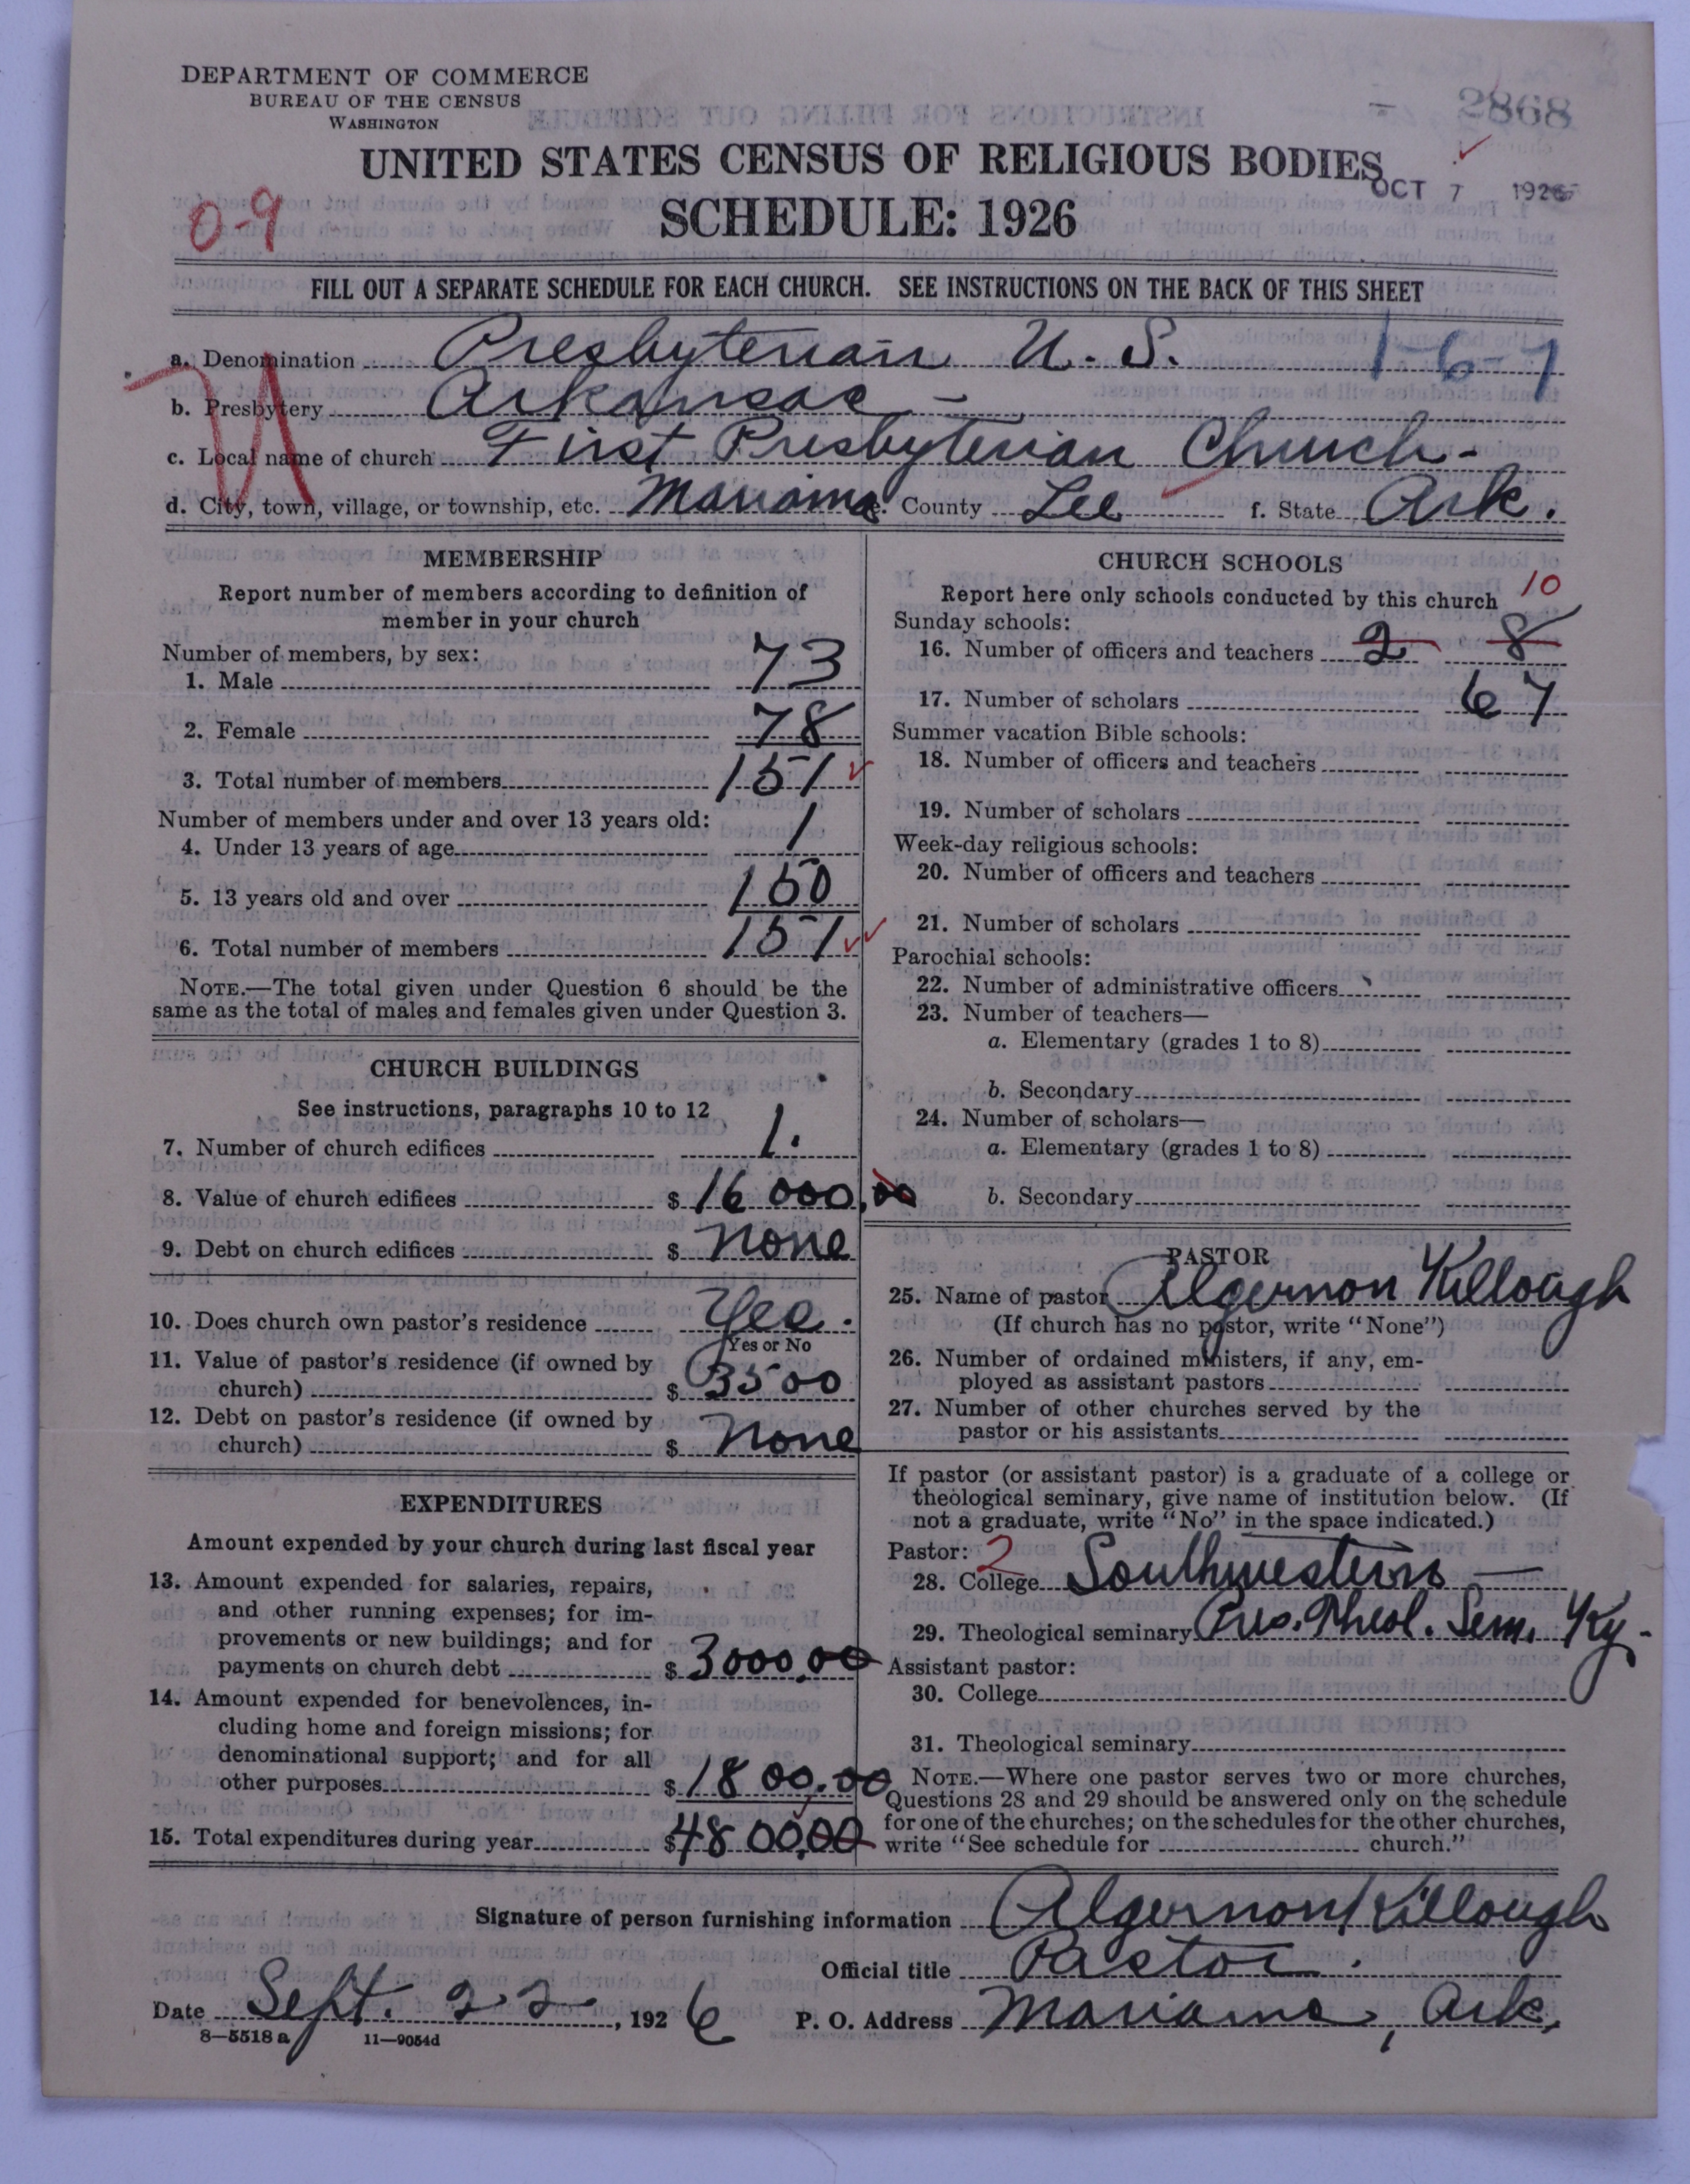 DEPARTMENT OF COMMERCE
BUREAU OF THE CENSUS
WASHINGTON
2868
UNITED STATES CENSUS OF RELIGIOUS BODIES
OCT 7 1926
0-9
SCHEDULE: 1926
FILL OUT A SEPARATE SCHEDULE FOR EACH CHURCH. SEE INSTRUCTIONS ON THE BACK OF THIS SHEET
a. Denomination Presbyterian U. S. 1-6-7
b. Presbytery Arkansas -
c. Local name of church First Presbyterian Church -
d. City, town, village, or township, etc. Marianna e. County Lee f. State Ark.
MEMBERSHIP
Report number of members according to definition of
member in your church
Number of members, by sex:
1. Male 73
2. Female 78
3. Total number of members 151
Number of members under and over 13 years old:
4. Under 13 years of age 1
5. 13 years old and over 150
6. Total number of members 151
NOTE.—The total given under Question 6 should be the
same as the total of males and females given under Question 3.
CHURCH BUILDINGS
See instructions, paragraphs 10 to 12
7. Number of church edifices 1.
8. Value of church edifices $ 16 000.00
9. Debt on church edifices $ None
10. Does church own pastor's residence Yes.
Yes or No
11. Value of pastor's residence (if owned by
church) $ 3500
12. Debt on pastor's residence (if owned by
church) $ None
EXPENDITURES
Amount expended by your church during last fiscal year
13. Amount expended for salaries, repairs,
and other running expenses; for im-
provements or new buildings; and for
payments on church debt $ 3000.00
14. Amount expended for benevolences, in-
cluding home and foreign missions; for
denominational support; and for all
other purposes $ 1800.00
15. Total expenditures during year $ 4800.00
CHURCH SCHOOLS
Report here only schools conducted by this church 10
Sunday schools:
16. Number of officers and teachers 2 8
17. Number of scholars 67
Summer vacation Bible schools:
18. Number of officers and teachers
19. Number of scholars
Week-day religious schools:
20. Number of officers and teachers
21. Number of scholars
Parochial schools:
22. Number of administrative officers
23. Number of teachers—
a. Elementary (grades 1 to 8)
b. Secondary
24. Number of scholars—
a. Elementary (grades 1 to 8)
b. Secondary
PASTOR
25. Name of pastor Algernon Killough
(If church has no pastor, write "None")
26. Number of ordained ministers, if any, em-
ployed as assistant pastors
27. Number of other churches served by the
pastor or his assistants
If pastor (or assistant pastor) is a graduate of a college or
theological seminary, give name of institution below. (If
not a graduate, write "No" in the space indicated.)
Pastor: 2
28. College Southwestern —
29. Theological seminary Pres. Theol. Sem. Ky.
Assistant pastor:
30. College
31. Theological seminary
NOTE.—Where one pastor serves two or more churches,
Questions 28 and 29 should be answered only on the schedule
for one of the churches; on the schedules for the other churches,
write "See schedule for church."
Signature of person furnishing information Algernon Killough
Official title Pastor.
Date Sept. 22, 1926 P. O. Address Marianna, Ark.
8—5518 a 11—9054d